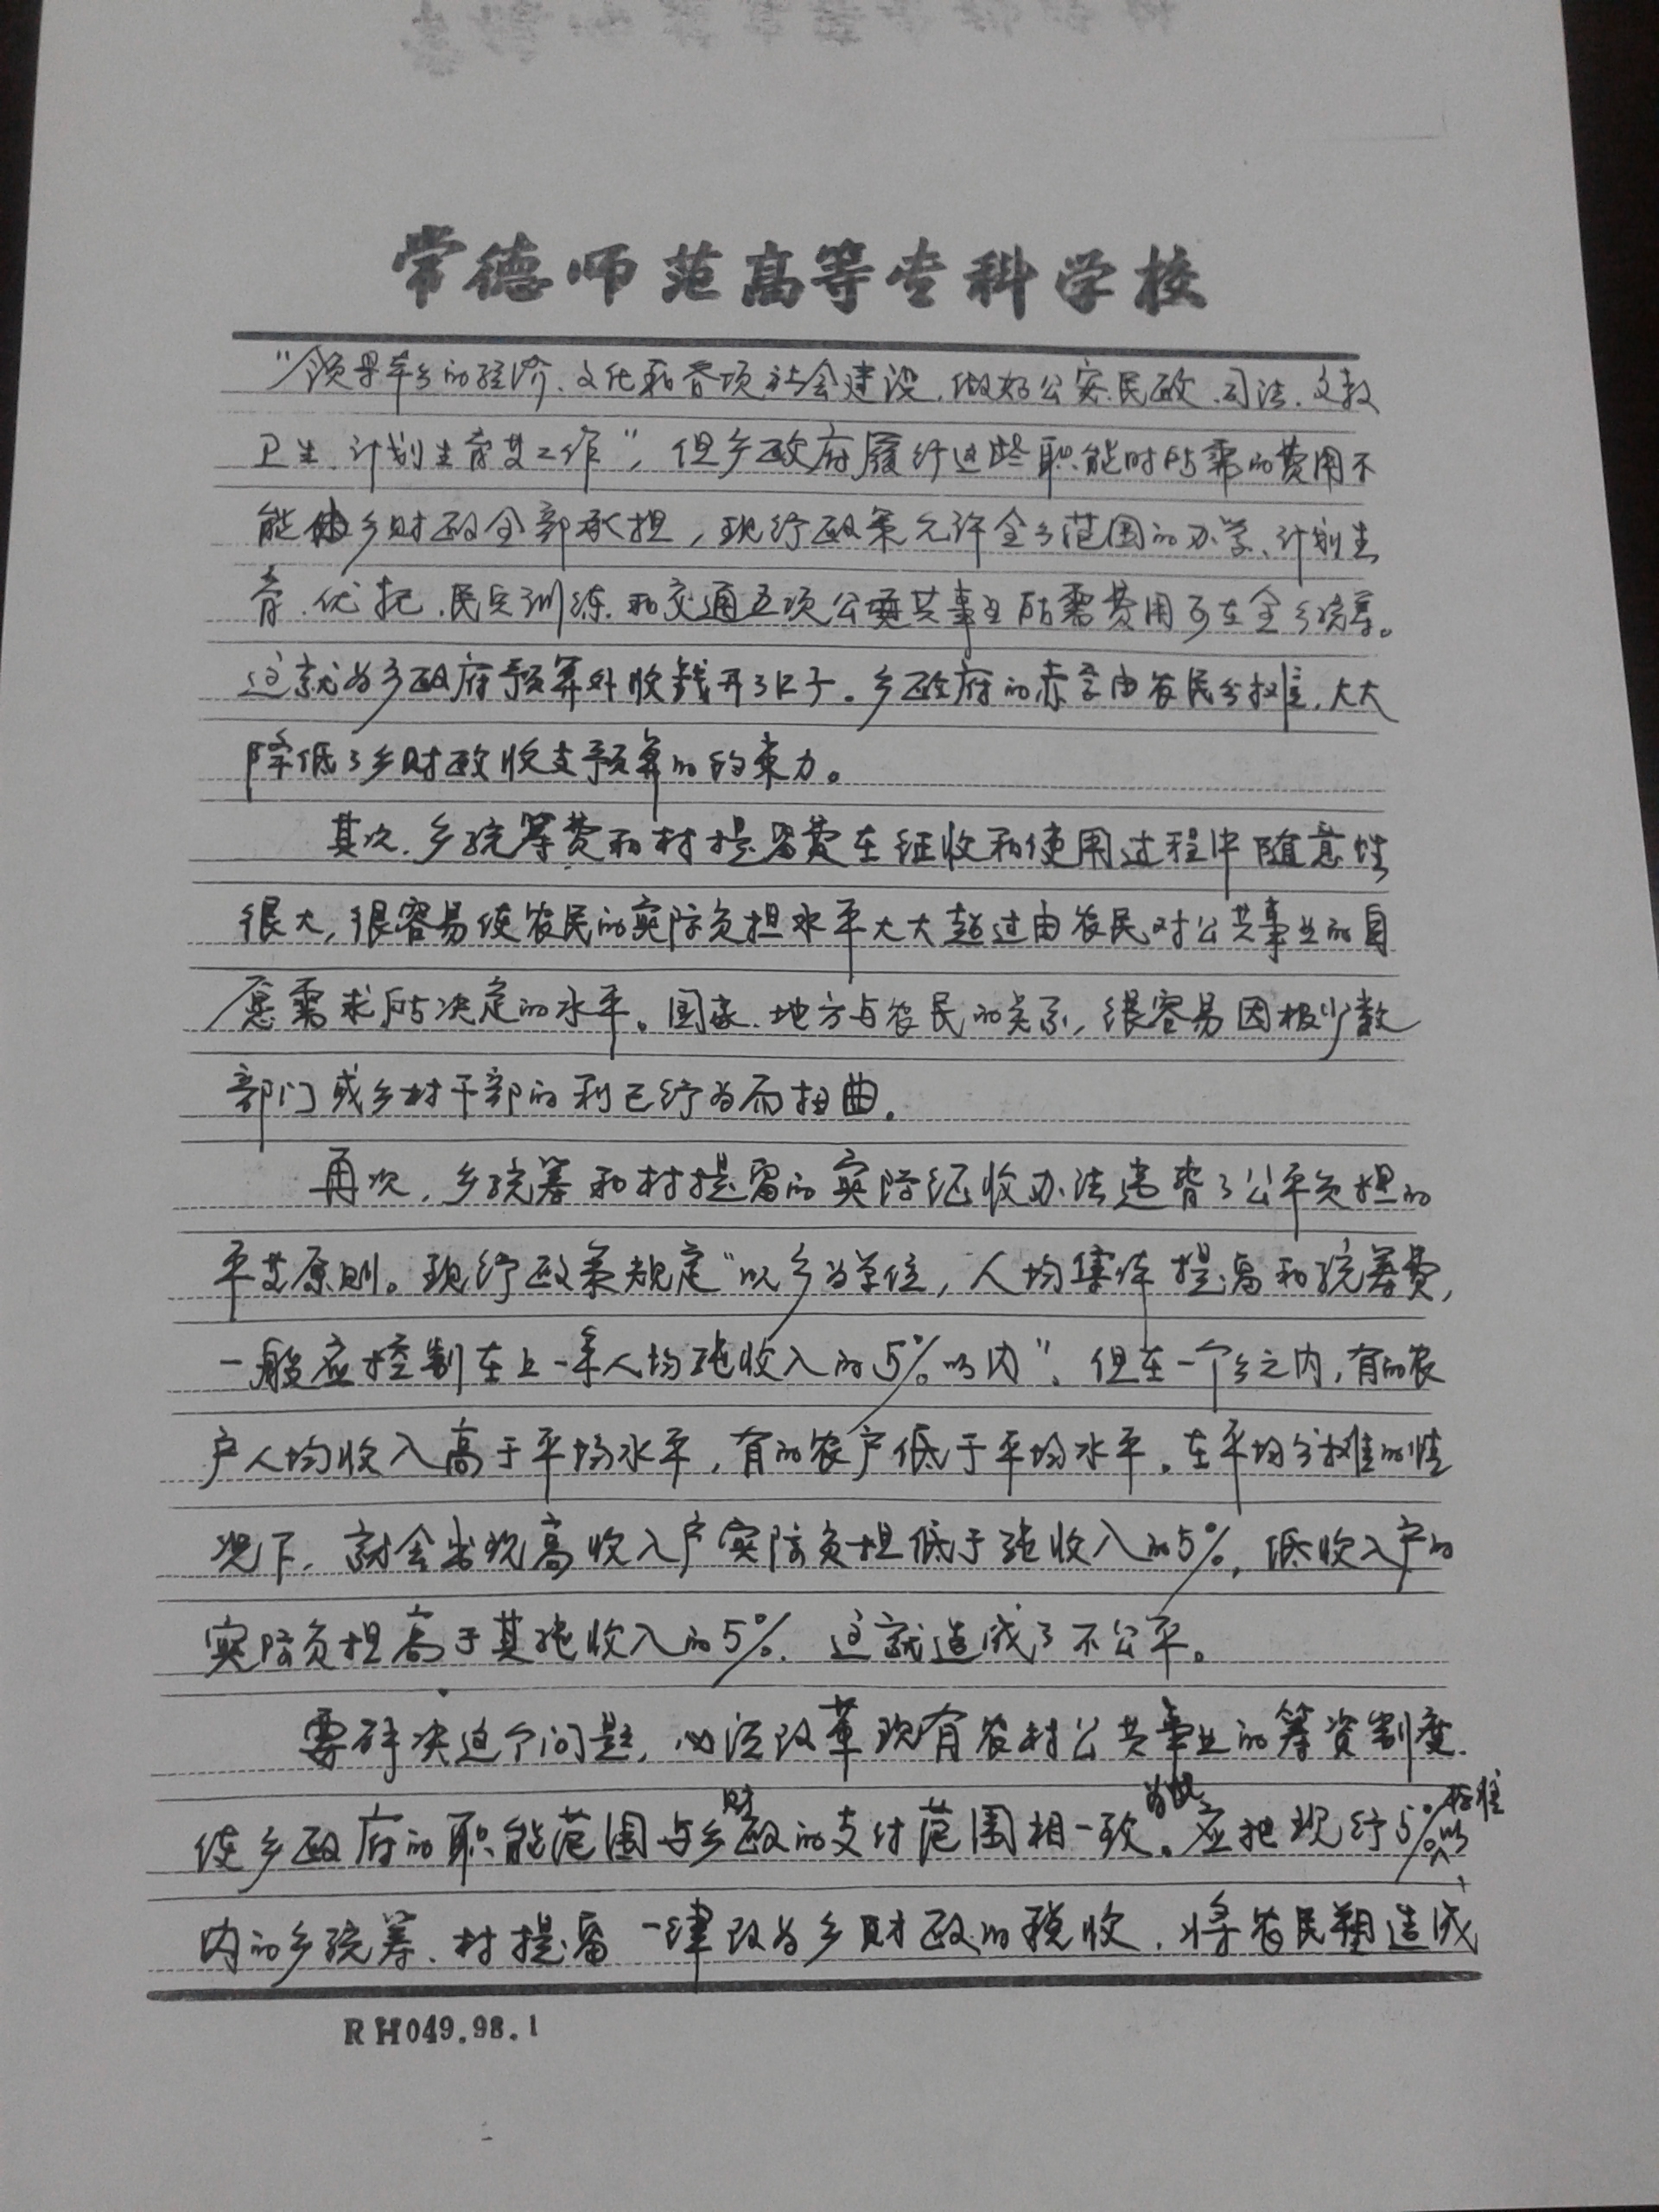 常德师范高等专科学校
“领导本乡的经济、文化和各项社会建设,做好公安、民政、司法、文教
卫生、计划生育等工作”,但乡政府履行这些职能时所需的费用不
能由乡财政全部承担,现行政策允许全乡范围的办学、计划生
育、优抚、民兵训练和交通五项公共事业所需费用可在全乡统筹。
这就为乡政府预算外收钱开了口子。乡政府的赤字由农民分摊,大大
降低了乡财政收支预算的约束力。
其次,乡统筹费和村提留费在征收和使用过程中随意性
很大,很容易使农民的实际负担水平大大超过由农民对公共事业的自
愿需求所决定的水平。国家、地方与农民的关系,很容易因极少数
部门或乡村干部的利己行为而扭曲。
再次,乡统筹和村提留的实际征收办法违背了公平负担的
平等原则。现行政策规定“以乡为单位,人均集体提留和统筹费,
一般应控制在上一年人均纯收入的5%以内”,但在一个乡之内,有的农
户人均收入高于平均水平,有的农户低于平均水平。在平均分摊的情
况下,就会出现高收入户实际负担低于纯收入的5%,低收入户的
实际负担高于其纯收入的5%,这就造成了不公平。
要解决这个问题,必须改革现有农村公共事业的筹资制度,
使乡政府的职能范围与乡财政的支付范围相一致。为此,应把现行5%标准以
内的乡统筹、村提留一律改为乡财政的税收,将农民塑造成
RH049.98.1